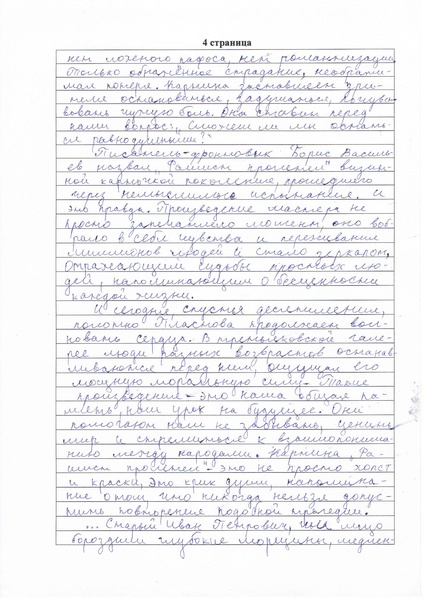 4 страница
нем ложного пафоса, нет романтизации
только обнажённое страдание, необрати-
мая потеря. Картина заставляет зри-
теля остановиться, задуматься, почувст-
вовать чужую боль. Она ставит перед
нами вопрос: „Сможем ли мы остать-
ся равнодушными?"
Писатель-фронтовик Борис Василь-
ев назвал „Фашист пролетел" визит-
ной карточкой поколения, прошедшего
через немыслимые испытания. И
это правда. Произведение мастера не
просто запечатлело момент, оно воб-
рало в себя чувства и переживания
миллионов людей и стало зеркалом,
отражающим судьбы простых лю-
дей, напоминающим о бесценности
каждой жизни.
И сегодня, спустя десятилетия,
полотно Пластова продолжает вол-
новать сердца. В третьяковской гале-
рее люди разных возрастов останав-
ливаются перед ним, ощущая его
мощную моральную силу. Такие
произведения - это наша общая па-
мять, наш урок на будущее. Они
помогают нам не забывать, ценить
мир и стремиться к взаимопонима-
нию между народами. Картина „Фа-
шист пролетел" - это не просто холст
и краски, это крик души, напомина-
ние о том что никогда нельзя допус-
тить повторение подобной трагедии.
... Старый Иван Петрович, чьё лицо
бороздили глубокие морщины, медлен-